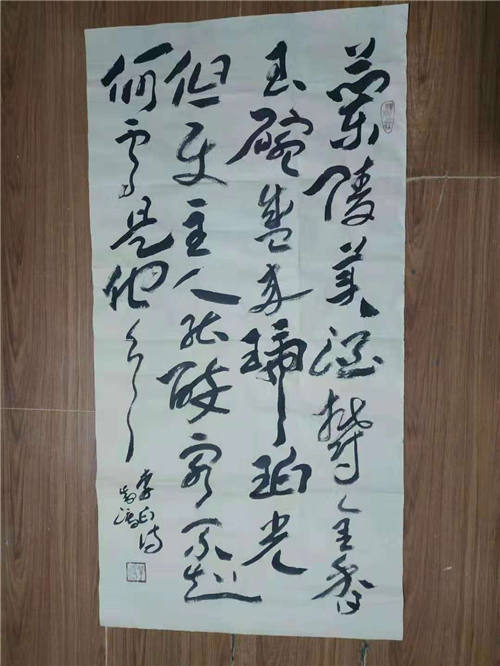 蘭陵美酒鬱金香
玉碗盛来琥珀光
但使主人能醉客不知
何處是他鄉
李白诗